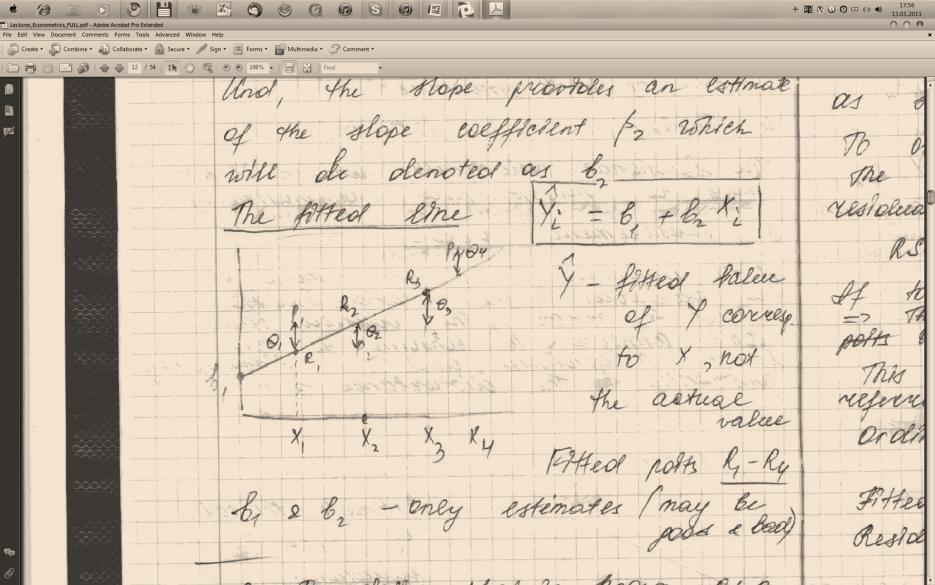 17:56
13.01.2011
Lectures_Econometrics_FULL.pdf - Adobe Acrobat Pro Extended
File Edit View Document Comments Forms Tools Advanced Window Help
Create Combine Collaborate Secure Sign Forms Multimedia Comment
12 / 54 198% Find
And, the slope provides an estimate
of the slope coefficient β₂ which
will be denoted as b₂
The fitted line Ŷᵢ = b₁ + b₂ Xᵢ
Ŷ - fitted value
of Y corresp.
to X, not
the actual
value
P₄ e₄
R₃
R₂
e₃
e₁ e₂
R₁
b₁
X₁ X₂ X₃ X₄
Fitted points R₁ - R₄
b₁ & b₂ - only estimates (may be
good & bad)
as
To
The
residua
RS
If
=> Th
This
referre
Ordi
Fitted
Resid